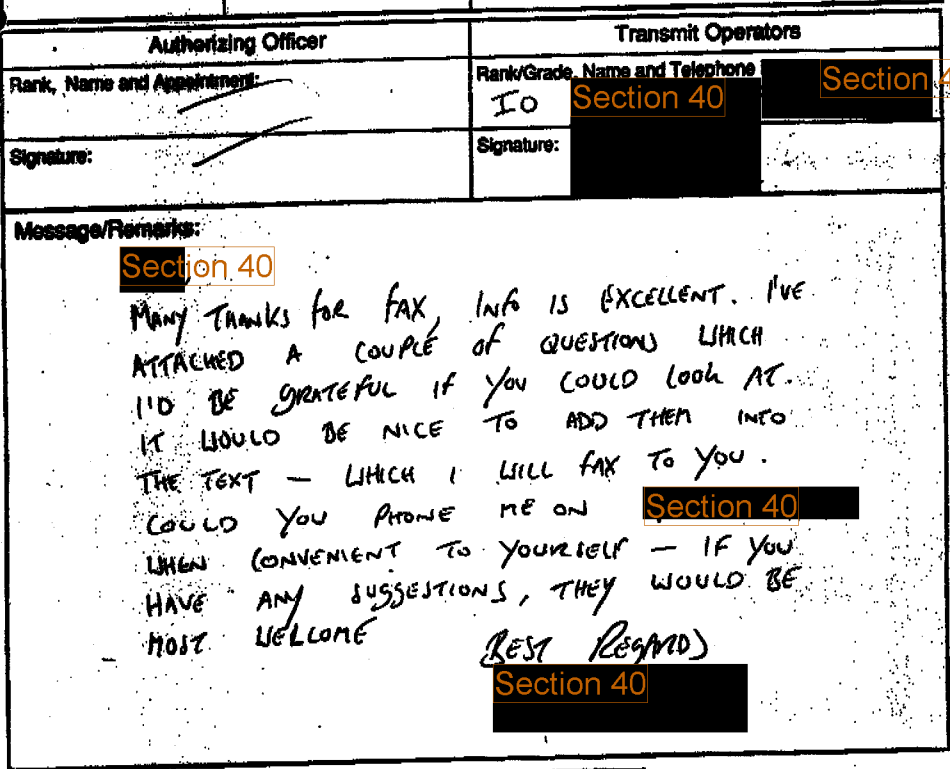 Authorizing Officer
Transmit Operators
Rank, Name and Appointment:
Rank/Grade, Name and Telephone
Section 40
IO
Section 40
Signature:
Signature:
Message/Remarks:
Section 40
MANY THANKS FOR FAX, INFO IS EXCELLENT. I'VE
ATTACHED A COUPLE OF QUESTIONS WHICH
I'D BE GRATEFUL IF YOU COULD LOOK AT.
IT WOULD BE NICE TO ADD THEM INTO
THE TEXT — WHICH I WILL FAX TO YOU.
COULD YOU PHONE ME ON Section 40
WHEN CONVENIENT TO YOURSELF — IF YOU
HAVE ANY SUGGESTIONS, THEY WOULD BE
MOST WELCOME
BEST REGARDS
Section 40